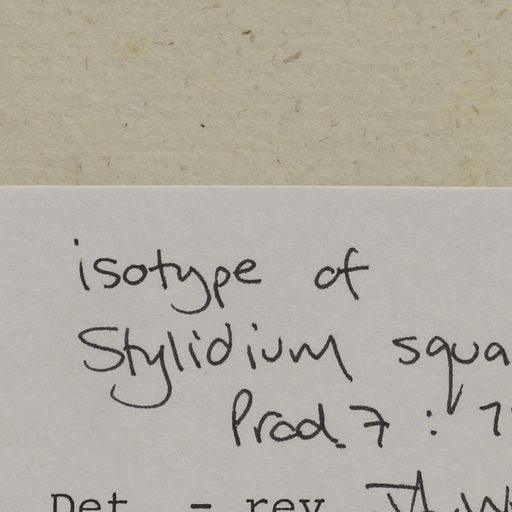 isotype of
Stylidium squa
Prod. 7 :
Det. - rev.